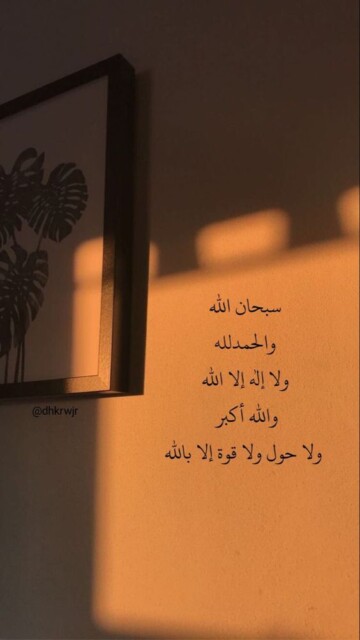 سبحان الله
والحمدلله
ولا إله إلا الله
والله أكبر
ولا حول ولا قوة إلا بالله
@dhkrwjr